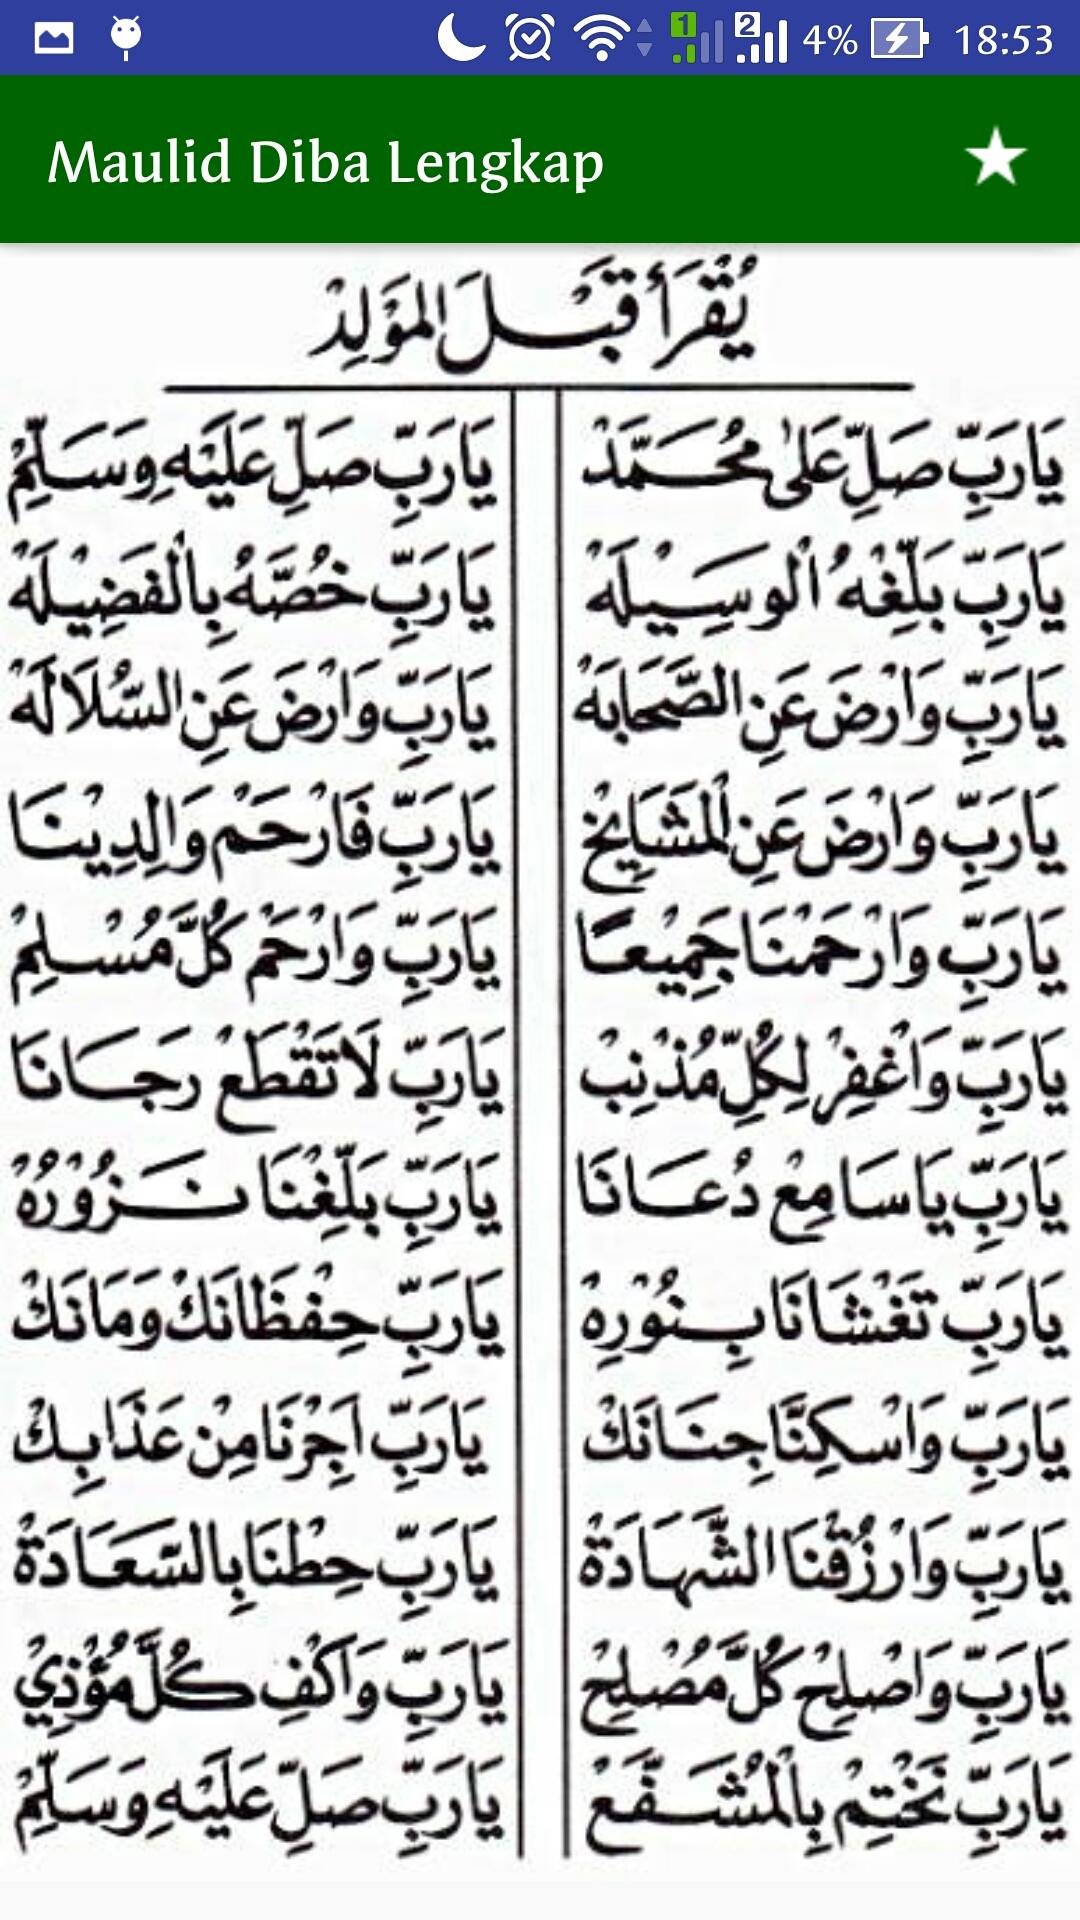 4% 18:53
Maulid Diba Lengkap
يُقْرَأُ قَبْلَ الْمَوْلِدْ
يَارَبِّ صَلِّ عَلَى مُحَمَّدْ يَارَبِّ صَلِّ عَلَيْهِ وَسَلِّمْ
يَارَبِّ بَلِّغْهُ الْوَسِيْلَهْ يَارَبِّ خُصَّهُ بِالْفَضِيْلَهْ
يَارَبِّ وَارْضَ عَنِ الصَّحَابَهْ يَارَبِّ وَارْضَ عَنِ السُّلَالَهْ
يَارَبِّ وَارْضَ عَنِ الْمَشَايِخْ يَارَبِّ فَارْحَمْ وَالِدِيْنَا
يَارَبِّ وَارْحَمْنَا جَمِيْعًا يَارَبِّ وَارْحَمْ كُلَّ مُسْلِمْ
يَارَبِّ وَاغْفِرْ لِكُلِّ مُذْنِبْ يَارَبِّ لَاتَقْطَعْ رَجَانَا
يَارَبِّ يَاسَامِعْ دُعَانَا يَارَبِّ بَلِّغْنَا نَزُوْرُهْ
يَارَبِّ تَغْشَانَا بِنُوْرِهْ يَارَبِّ حِفْظَانَكْ وَمَانَكْ
يَارَبِّ وَاسْكِنَّا جِنَانَكْ يَارَبِّ اَجِرْنَا مِنْ عَذَابِكْ
يَارَبِّ وَارْزُقْنَا الشَّهَادَةْ يَارَبِّ حِطْنَا بِالسَّعَادَةْ
يَارَبِّ وَاصْلِحْ كُلَّ مُصْلِحْ يَارَبِّ وَاكْفِ كُلَّ مُؤْذِيْ
يَارَبِّ نَخْتِمْ بِالْمُشَفَّعْ يَارَبِّ صَلِّ عَلَيْهِ وَسَلِّمْ